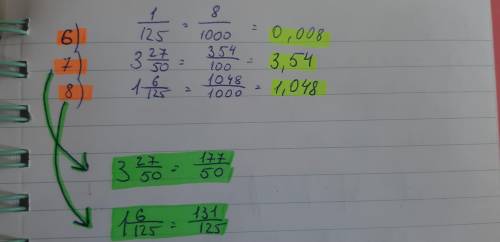 6) 1/125 = 8/1000 = 0,008
7) 3 27/50 = 354/100 = 3,54
8) 1 6/125 = 1048/1000 = 1,048
3 27/50 = 177/50
1 6/125 = 131/125